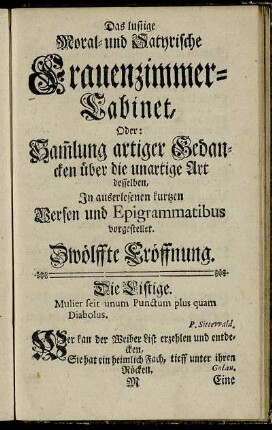 Das lustige
Moral- und Satyrische
Frauenzimmer-
Cabinet,
Oder:
Sam̃lung artiger Gedan-
cken über die unartige Art
desselben,
In auserlesenen kurtzen
Versen und Epigrammatibus
vorgestellet.
Zwölffte Eröffnung.
Die Listige.
Mulier scit unum Punctum plus quam
Diabolus.
P. Sittewald.
Wer kan der Weiber List erzehlen und entde-
cken,
Sie hat ein heimlich Fach, tieff unter ihren
Röcken.
Galan.
M
Eine